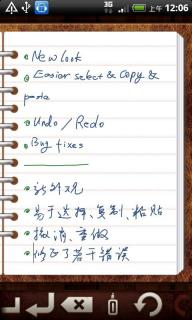 3G 上午 12:06
New look
Easier select & Copy &
paste
Undo / Redo
Bug fixes
新外观
易于选择、复制、粘贴
撤消、重做
修正了若干错误